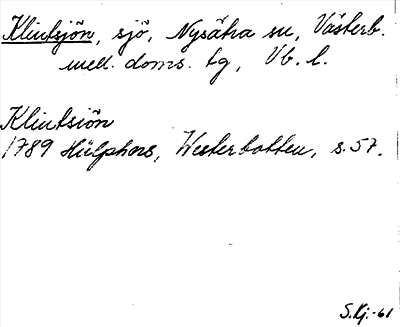 Klintsjön, sjö, Nysätra sn, Västerb.
mell. doms. tg, Vb. l.
Klintsiön
1789 Hülphers, Westerbotten, s. 57.
S.Kj.-61